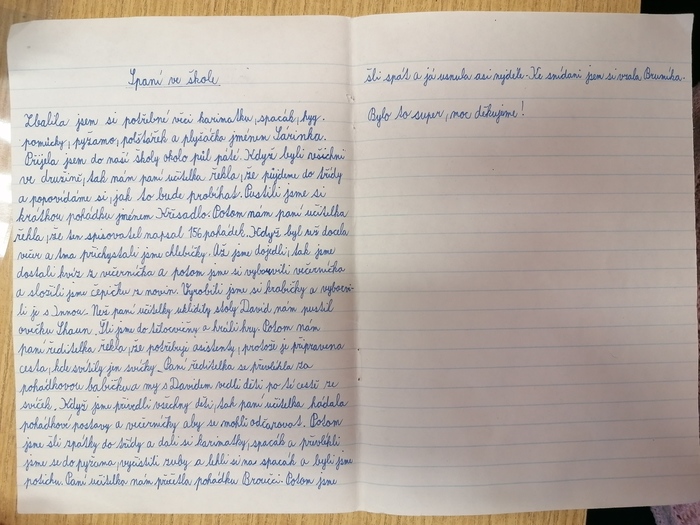 Spaní ve škole
Zbalila jsem si potřebné věci karimatku, spacák, hyg.
pomůcky, pyžamo, polštářek a plyšáčka jménem Sárinka.
Přijela jsem do naší školy okolo půl páté. Když byli všichni
ve družině, tak nám paní učitelka řekla, že půjdeme do třídy
a popovídáme si, jak to bude probíhat. Pustili jsme si
krátkou pohádku jménem Křesadlo. Potom nám paní učitelka
řekla, že ten spisovatel napsal 156 pohádek. Když byl už docela
večer a tma přichystali jsme chlebíčky. Až jsme dojedli, tak jsme
dostali kvíz z večerníčka a potom jsme si vybarvili večerníčka
a složili jsme čepičku z novin. Vyrobili jsme si krabičky a vybarvi-
li je s Innou. Než paní učitelky uklidily stoly David nám pustil
ovečku Shaun. Šli jsme do tělocvičny a hráli hry. Potom nám
paní ředitelka řekla, že potřebuji asistenty, protože je připravena
cesta, kde svítily jen svíčky. Paní ředitelka se převlékla za
pohádkovou babičku a my s Davidem vedli děti po té cestě ze
svíček. Když jsme převedli všechny děti, tak paní učitelka hádala
pohádkové postavy a večerníčky aby se mohli odčarovat. Potom
jsme šli zpátky do třídy a dali si karimatky, spacák a převlékli
jsme se do pyžama, vyčistili zuby a lehli si na spacák a byli jsme
potichu. Paní učitelka nám přečetla pohádku Broučci. Potom jsme
šli spát a já usnula asi nejdéle. Ke snídani jsem si vzala Brumíka.
Bylo to super, moc děkujeme!